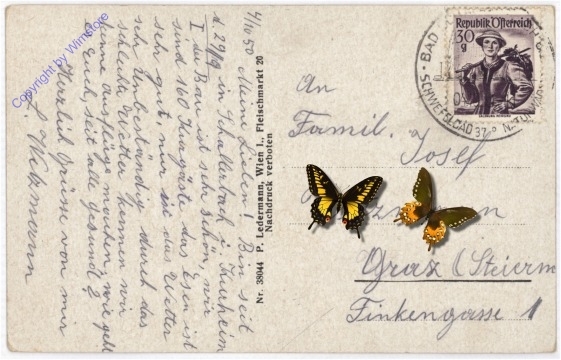 4/10 50 Meine Lieben! Bin seit
d. 29/9 in Schallerbach j. Kurheim
I. der Bau ist sehr schön, wir
sind 160 Kurgäste das Essen ist
sehr gut, nur ist das Wetter
sehr unbeständig durch das
schlechte Wetter können wir
keine Ausflüge machen, wie geht
es Euch seit alle gesund?
Herzlich Grüße von mir
L.
Nr. 38044 P. Ledermann, Wien I., Fleischmarkt 20
Nachdruck verboten
Republik Österreich
30
g
BAD
SCHWEFELBAD 37°
An
Famil. Josef
Graz (Steierm
Finkengasse 1
Copyright by Wimstore